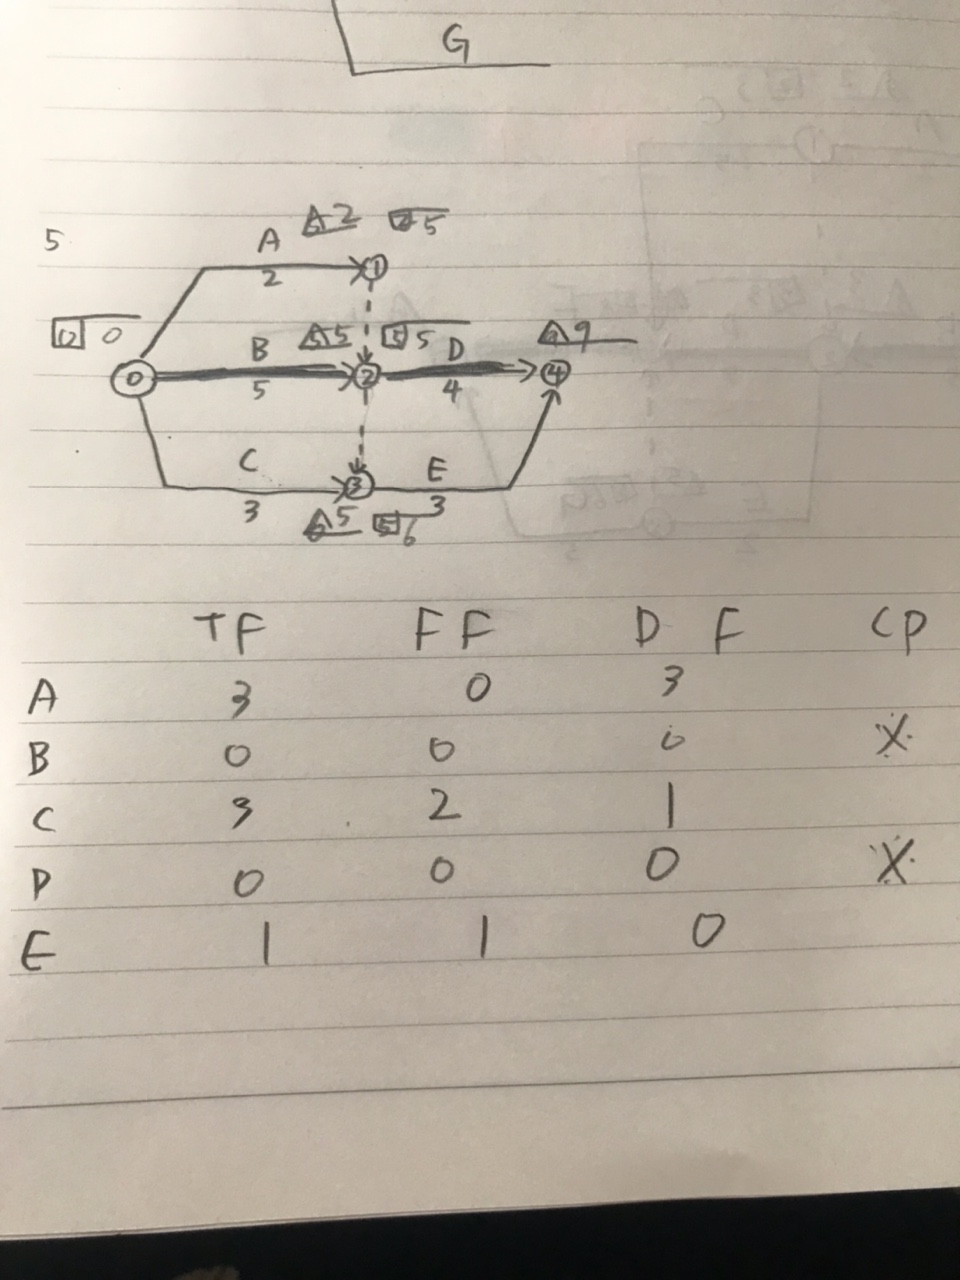 G
5
A 2 5
A 2
2 1
0
5 5 9
B D
0 2 4
5 4
C E
3
3 3
5 6
TF FF DF CP
A 3 0 3
B 0 0 0 X
C 3 2 1
D 0 0 0 X
E 1 1 0